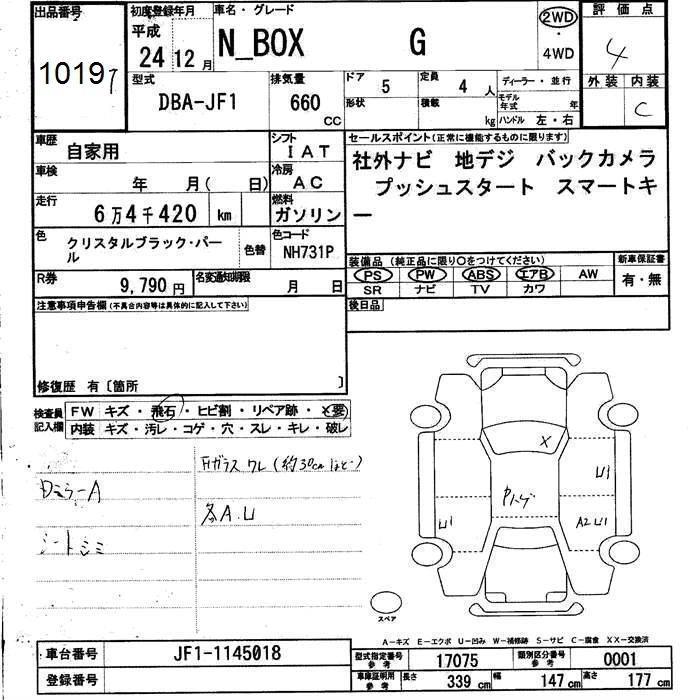 出品番号 初度登録年月 車名・グレード 2WD 評価点
10197 平成 24年 12月 N_BOX G ・ 4WD 4
型式 排気量 ドア 定員 ディーラー・並行 外装 内装
DBA-JF1 660 CC 5 4人 C
形状 積載 kg モデル年式 年
ハンドル 左・右
車歴 自家用 シフト IAT セールスポイント(正常に機能するものに限ります)
車検 年 月( 日) 冷房 AC 社外ナビ 地デジ バックカメラ
走行 6万4千420 km 燃料 ガソリン プッシュスタート スマートキ
ー
色 クリスタルブラック・パール 色替 色コード NH731P
装備品(純正品に限り○をつけてください) 新車保証書
R券 9,790円 名変通知期限 月 日 PS PW ABS エアB AW 有・無
SR ナビ TV カワ
注意事項申告欄(不具合内容等は具体的に記入して下さい) 後日品
修復歴 有〔箇所 〕
検査員記入欄 FW キズ・飛石・ヒビ割・リペア跡・X要
内装 キズ・汚レ・コゲ・穴・スレ・キレ・破レ
Fガラス ワレ(約30cmほど)
DミラーA
各A.U
シートシミ
X
U1
U1
A2 U1
スペア
A-キズ E-エクボ U-凹み W-補修跡 S-サビ C-腐食 XX-交換済
車台番号 JF1-1145018 型式指定番号 参考 17075 類別区分番号 参考 0001
登録番号 車庫証明用 参考 長さ 339cm 幅 147cm 高さ 177cm